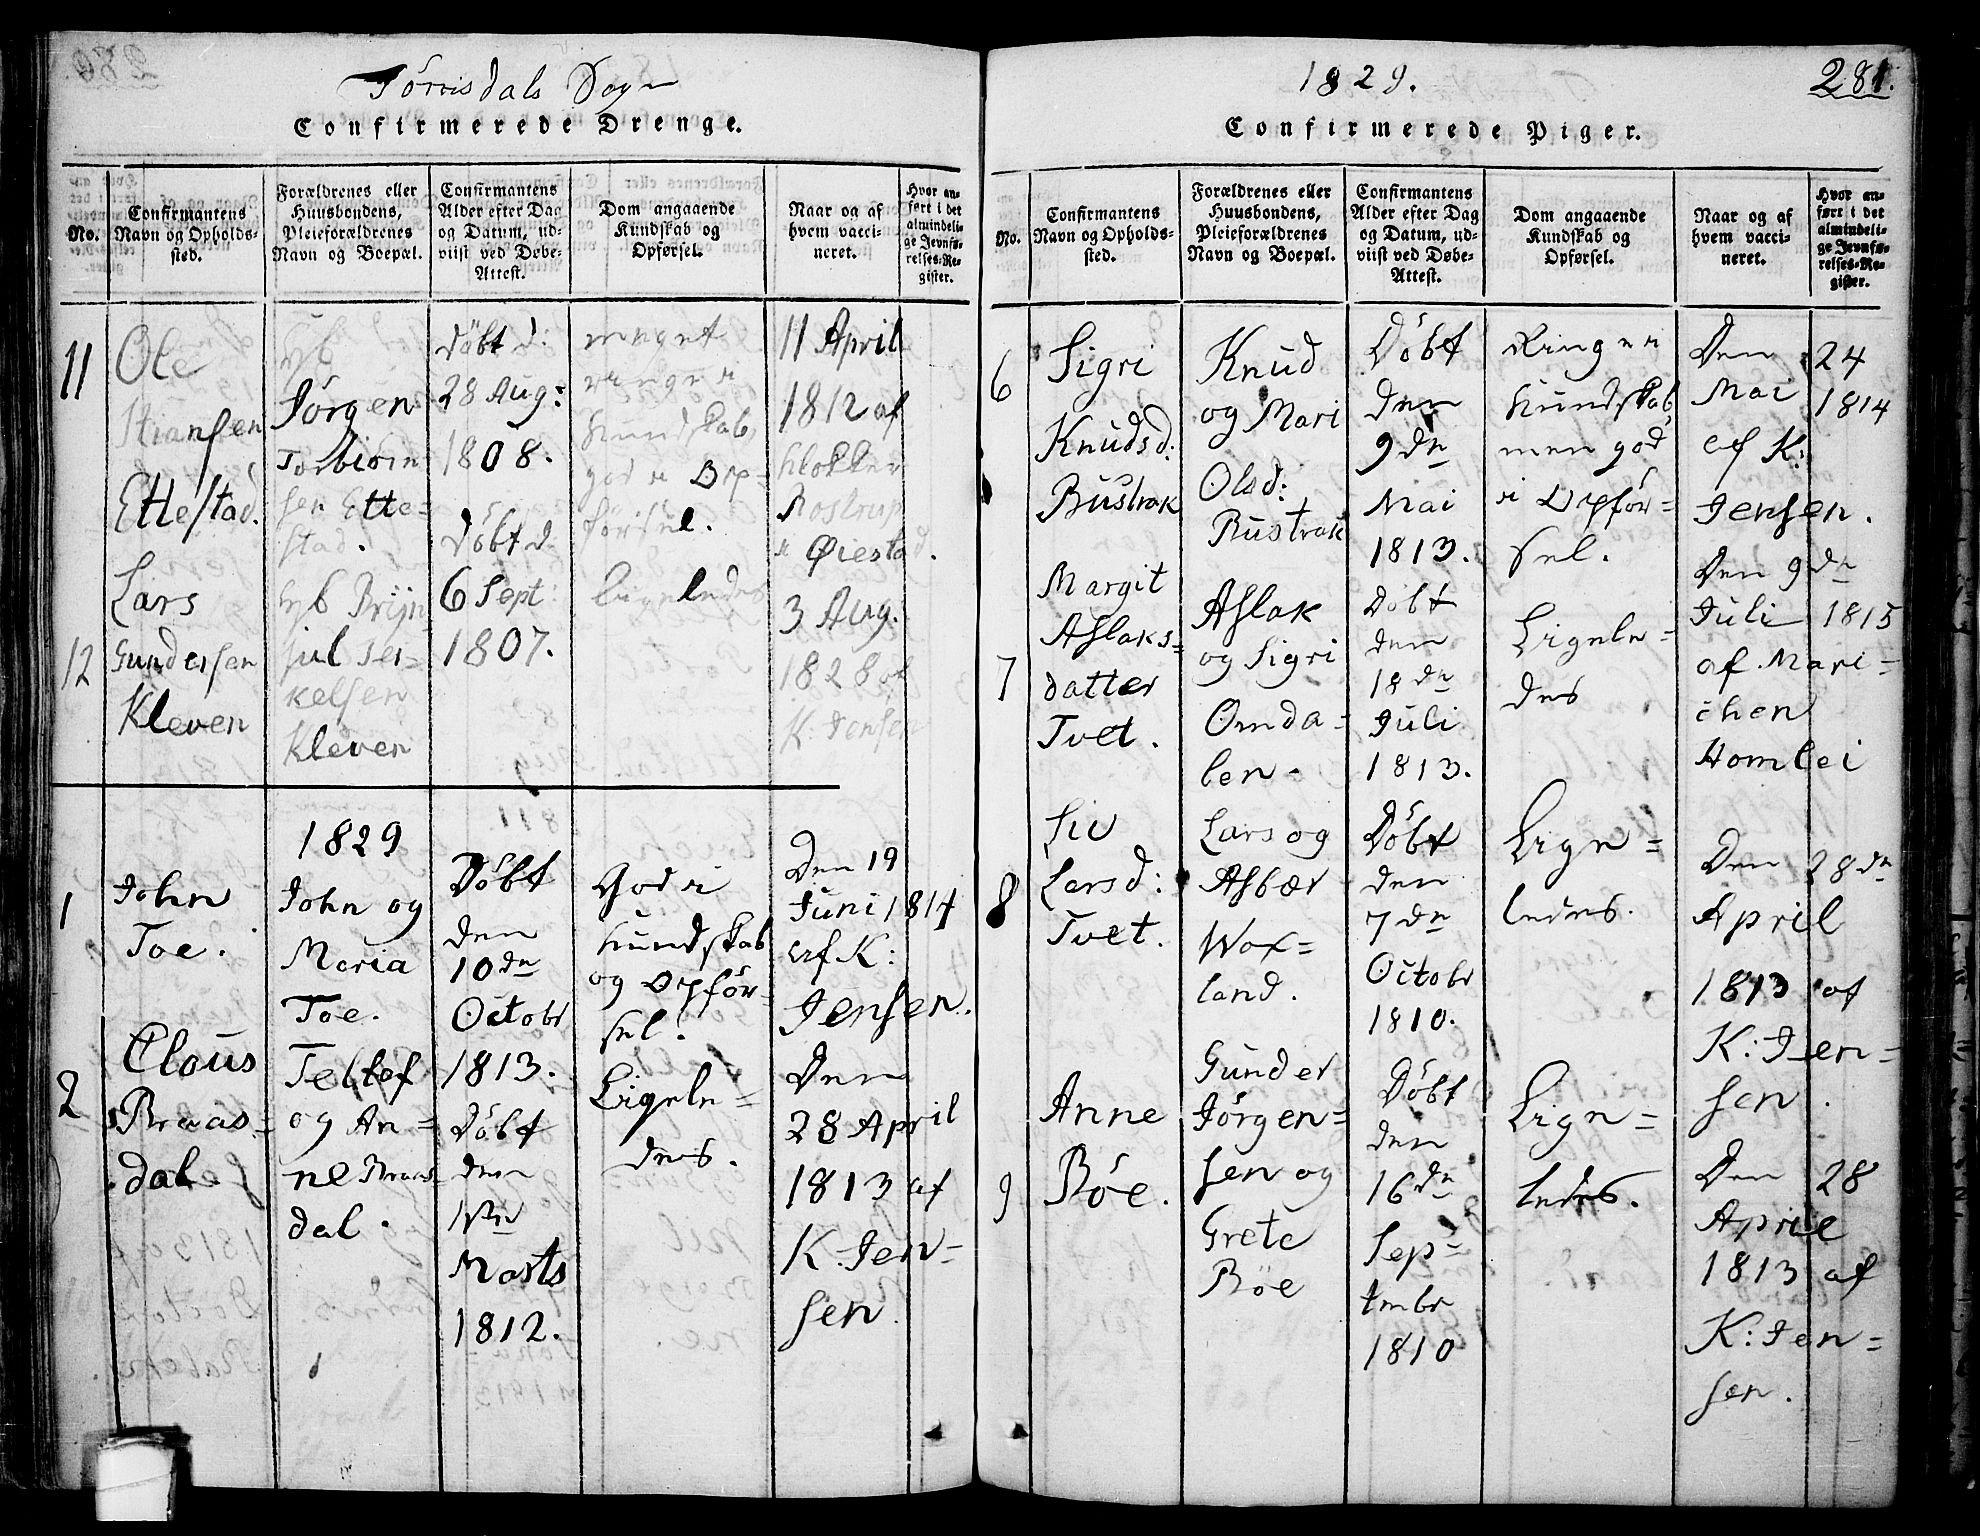 Törrisdals Sogn
Confirmerede Drenge.
No.
Confirmantens
Navn og Opholds-
sted.
Forældrenes eller
Huusbondens,
Pleieforældrenes
Navn og Boepæl.
Confirmantens
Alder efter Dag
og Datum, ud-
viist ved Døbe-
Attest.
Dom angaaende
Kundskab og
Opførsel.
Naar og af
hvem vacci-
neret.
Hvor an-
ført i det
almindeli-
ge Jevnfø-
relses-Re-
gister.
11
Ole
Hansen
Ettestad.
Jörgen
Torbiörn
sen Ette-
stad.
Döbt d:
28 Aug:
1808.
meget
ringe i
Kundskab,
god i Op-
försel.
11 April
1812 af
Klokker
Rostrup
i Øiestad.
12
Lars
Gundersen
Kleven
Brÿn
jul Ter-
kelsen
Kleven
Döbt d.
6 Sept:
1807.
Ligeledes
3 Aug:
1828 af
K. Jensen
1829
1
John
Toe.
John og
Maria
Toe.
Döbt
den
10dn
Octobr
1813.
God i
Kundskab
og Opför-
sel.
Den 19
Juni 1814
af K:
Jensen.
2
Claus
Braas-
dal
Tellef
og An-
ne Braas
dal.
Döbt
den
1stn
Marts
1812.
Ligele-
des.
Den
28 April
1813 af
K. Jen-
sen.
1829.
281.
Confirmerede Piger.
No.
Confirmantens
Navn og Opholds-
sted.
Forældrenes eller
Huusbondens,
Pleieforældrenes
Navn og Boepæl.
Confirmantens
Alder efter Dag
og Datum, ud-
viist ved Døbe-
Attest.
Dom angaaende
Kundskab og
Opførsel.
Naar og af
hvem vacci-
neret.
Hvor an-
ført i det
almindeli-
ge Jevnfø-
relses-Re-
gister.
6
Sigri
Knudsd:
Bustrak
Knud
og Mari
Olsd:
Bustrak
Döbt
den
9dn
Mai
1813.
Ringe i
Kundskab,
men god
i Opför-
sel.
Den 24
Mai 1814
af K:
Jensen.
7
Margit
Aslaks-
datter
Tvet.
Aslak
og Sigri
Omda-
len.
Döbt
den
18dn
Juli
1813.
Ligele-
des
Den 9dn
Juli 1815
af Mari-
chen
Homlei
8
Liv
Larsd:
Tvet.
Lars og
Asbær
Wax-
land.
Döbt
den
7dn
Octobr
1810.
Lige-
ledes.
Den 28dn
April
1813 af
K: Jen-
sen.
9
Anne
Böe.
Gunder
Jörgen-
sen og
Grete
Böe
Döbt
den
16dn
Sep-
tmbr
1810
Lige-
ledes.
Den 28
April
1813 af
K: Jen-
sen.